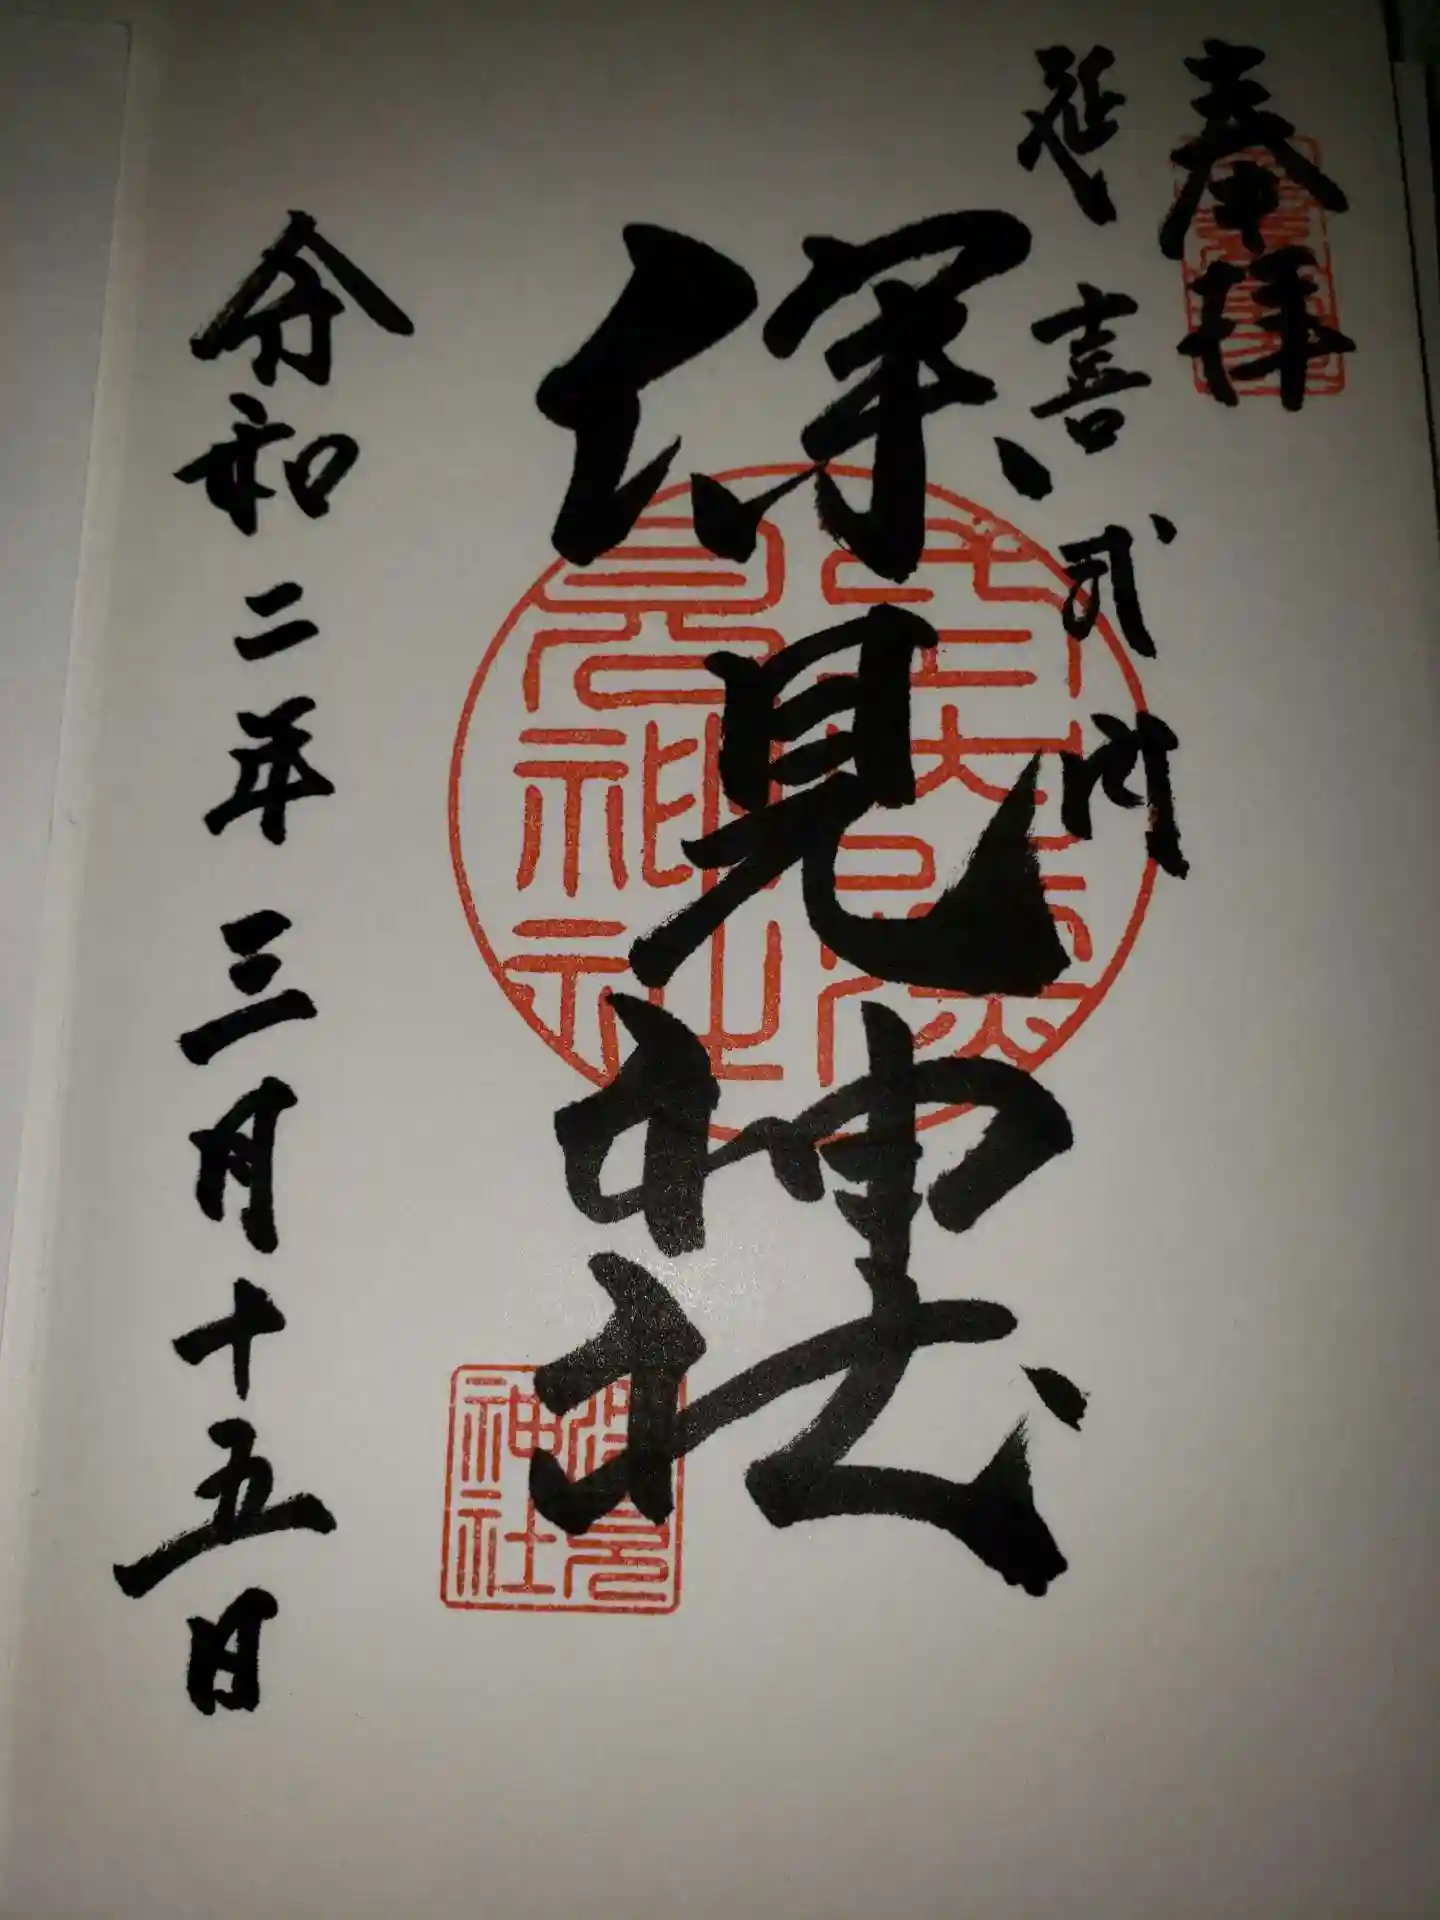 奉拝
延喜式内
深見神社
令和二年三月十五日
深見
神社